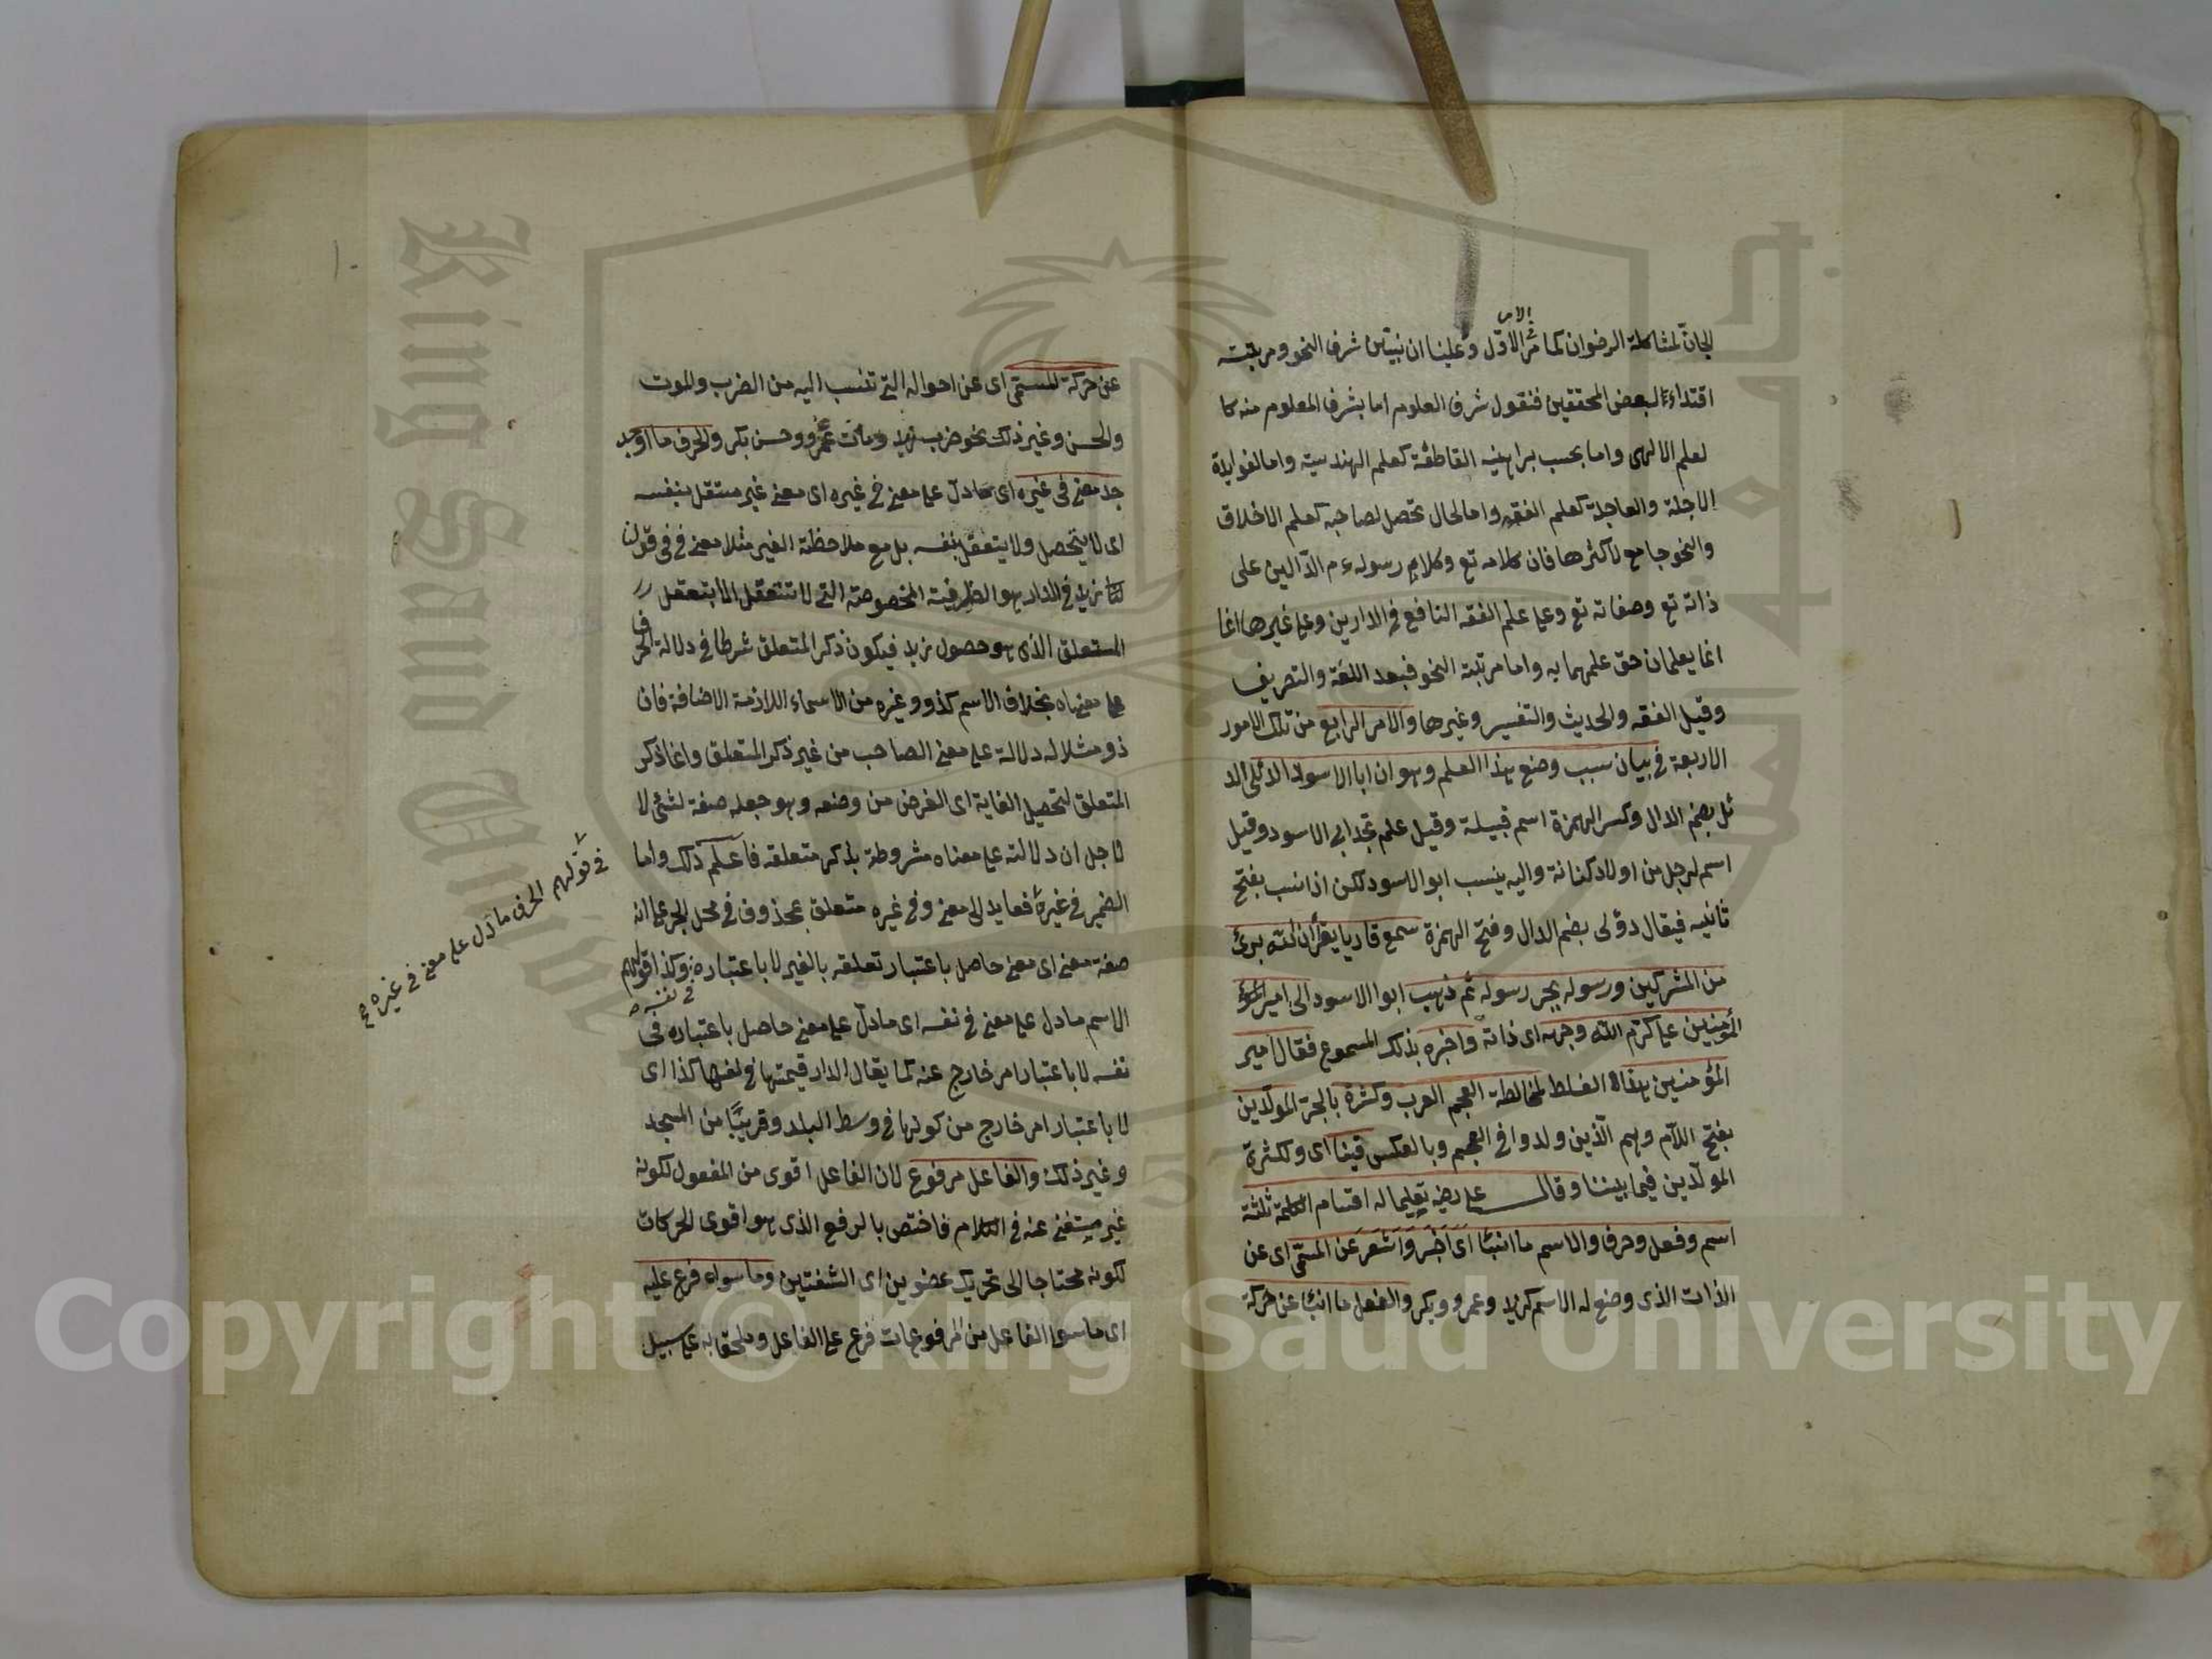 الامر
الجان لمشاكلة الرضوان كما مر الاول وعلينا ان نبين شرف النحو ومرتبته
اقتداء لبعض المحققين فنقول شرف العلوم اما بشرف المعلوم منه كا
لعلم الالهى واما بحسب براهينه القاطعة كعلم الهندسية واما لفوايدة
الاجلة والعاجلة كعلم الفقه واما لحال تحصل لصاحبه كعلم الاخلاق
والنحو جامع لاكثرها فان كلامه تع وكلام رسوله ءم الدالين على
ذاته تع وصفاته تع وعلى علم الفقه النافع فى الدارين وعلى غيرها انما
انما يعلمان حق علمهما به واما مرتبة النحو فبعد اللغة والتصريف
وقبل الفقه والحديث والتفسير وغيرها والامر الرابع من تلك الامور
الاربعة فى بيان سبب وضع هذا العلم وهو ان ابا الاسود الدئلى الد
ئل بضم الدال وكسر الهمزة اسم قبيلة وقيل علم لجد ابى الاسود وقيل
اسم لرجل من اولاد كنانة واليه ينسب ابو الاسود لكن اذا نسب بفتح
ثانيه فيقال دؤلى بضم الدال وفتح الهمزة سمع قاريا يقرأ ان الله برئ
من المشركين ورسوله بجر رسوله ثم ذهب ابوا الاسود الى امير
المؤمنين على كرم الله وجهه اى ذاته واخبره بذلك المسموع فقال امير
المؤمنين هذا الغلط لمخالطة العجم العرب وكثرة بالجر المولدين
بفتح اللام وهم الذين ولدوا فى العجم وبالعكس فينا اى ولكثرة
المولدين فيما بيننا وقال على رضه تعليما له اقسام الكلمة ثلثة
اسم وفعل وحرف والاسم ما انبأ اى اخبر واشعر عن المسمى اى عن
الذات الذى وضع له الاسم كزيد وعمرو وبكر والفعل ما انبأ عن حركة
عن حركة المسمى اى عن احواله التى تنسب اليه من الضرب والموت
والحسن وغير ذلك نحو ضرب زيد ومات عمرو وحسن بكر والحرف ما اوجد
جد معنى فى غيره اى مادل على معنى فى غيره اى معنى غير مستقل بنفسه
اى لا يتحصل ولا يتعقل بنفسه بل مع ملاحظة الغير مثلا معنى فى فى قولنا
لنا زيد فى الدار هو الظرفية المخصوصة التى لا تتعقل الا بتعقل
المتعلق الذى هو حصول زيد فيكون ذكر المتعلق شرطا فى دلالة الحرف
على معناه بخلاف الاسم كذو وغيره من الاسماء اللازمة الاضافة فان
ذو مثلا له دلالة على معنى الصاحب من غير ذكر المتعلق وانما ذكر
المتعلق لتحصيل الغاية اى الغرض من وضعه وهو جعله صفة لشئ لا
لاجل ان دلالته على معناه مشروطة بذكر متعلقه فاعلم ذلك واما
الضمير فى غيره فعايد الى معنى وفى غيره متعلق بمحذوف فى محل الجر على انه
صفة معنى اى معنى حاصل باعتبار تعلقه بالغير لا باعتباره وكذا قولهم
فى نفسه
الاسم مادل على معنى فى نفسه اى مادل على معنى حاصل باعتباره فى
نفسه لا باعتبار امر خارج عنه كما يقال الدار قيمتها فى نفسها كذا اى
لا باعتبار امر خارج من كونها فى وسط البلد وقريبا من المسجد
وغير ذلك والفاعل مرفوع لان الفاعل اقوى من المفعول لكونه
غير مستغنى عنه فى الكلام فاختص بالرفع الذى هو اقوى الحركات
لكونه محتاجا الى تحريك عضوين اى الشفتين وما سواه فرع عليه
اى ما سوا الفاعل من المرفوعات فرع على الفاعل وملحق به على سبيل
فى قولهم الحرف مادل على معنى فى غيره
King Saud
Copyright © King Saud University